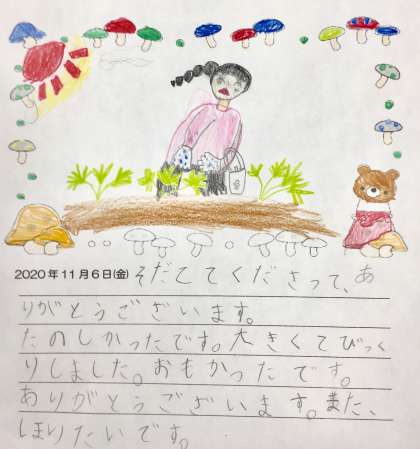 2020年11月6日(金) そだててくださって、あ
りがとうございます。
たのしかったです。大きくてびっく
りしました。おもかったです。
ありがとうございます。また、
ほりたいです。